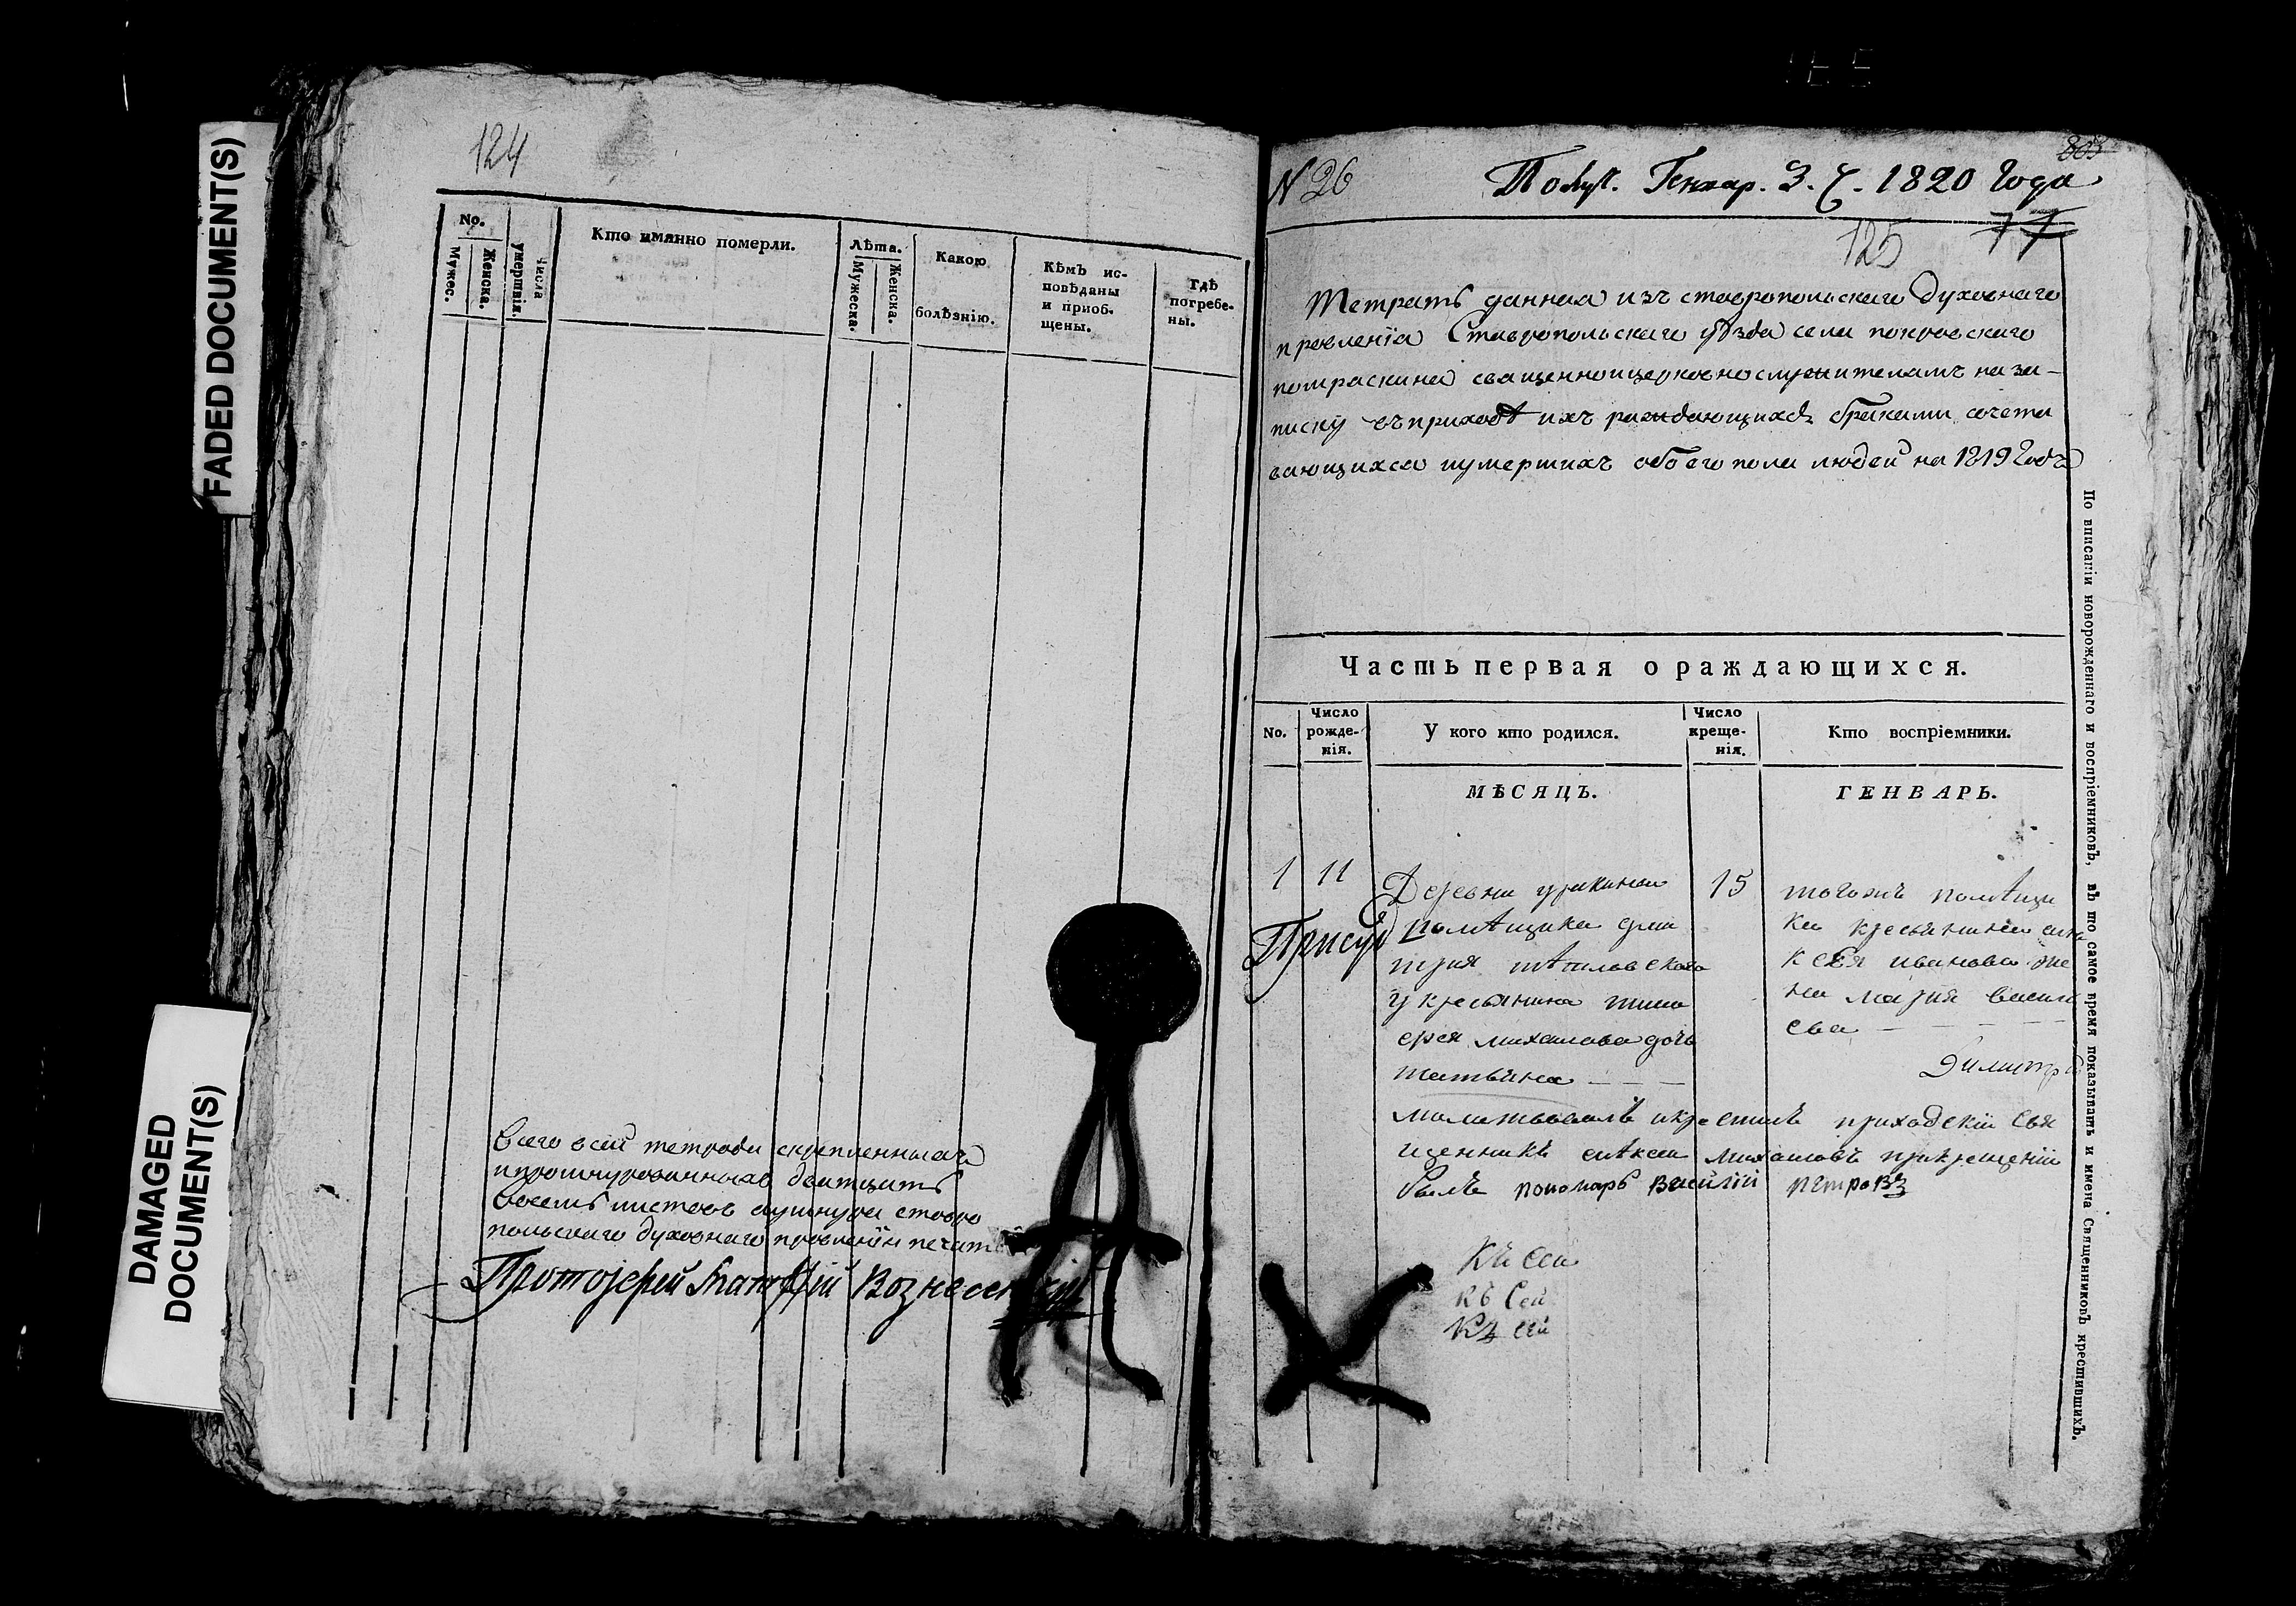 FADED DOCUMENT(S)
DAMAGED
DOCUMENT(S)
124
No.
Мужес.
Женска.
Числа
умершвія.
Кто имянно померли.
Лѣта.
Мужеска.
Женска.
Какою
болѣзнію.
Кѣмъ ис-
повѣданы
и приоб-
щены.
Гдѣ
погребе-
ны.
Всего всей тетради скрепленныхъ
и прошнурованныхъ дватцать
восемь листовъ а у шнура ставро
польскаго духовнаго правленія печать
Протоіерей Вознесенскій
N 26
Получ. Генвар. 3. ч. 1820 года
803
77
125
Тетрать данная изъ ставропольскаго духовнаго
правленія Ставропольскаго уѣзда села покровскаго
священноицерковнослужителамъ на за-
писку въ приходѣ ихъ раждающихся браками сочета
вающихся иумершихъ обоего пола людей на 1819 Годъ
Часть первая о раждающихся.
No.
Число
рожде-
нія.
У кого кто родился.
Число
креще-
нія.
Кто воспріемники.
МѢСЯЦЪ.
ГЕНВАРЬ.
1
11
Деревни
помѣщика дми
трия
у крестьянина тимо
ѳея михаилова дочь
татьяна
15
тогожъ помѣщи
ка крестьянина але
ксея иванова же
на мария василь
ева
Димитр
молитвовалъ икрестилъ приходскій свя
щенникъ алѣксеи михаиловъ прикрещеніи
былъ пономарь Василій петровъ
По вписаніи новорожденнаго и воспріемниковъ, въ то самое время показывать и имена Священниковъ крестившихъ.
Къ сей
къ Сей
къ сей